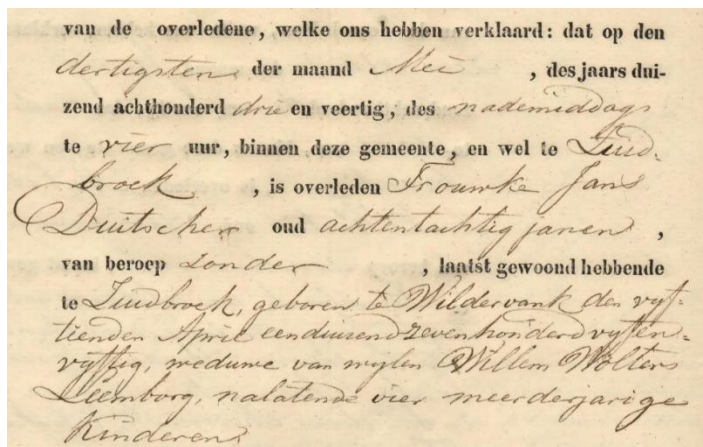 van de overledene, welke ons hebben verklaard: dat op den
dertigsten der maand Mei , des jaars dui-
zend achthonderd drie en veertig, des nademiddags
te vier uur, binnen deze gemeente, en wel te Zuid-
broek , is overleden Trouwke Jans
Duitscher oud achtentachtig jaren ,
van beroep zonder , laatst gewoond hebbende
te Zuidbroek, geboren te Wildervank den vyf-
tienden April eenduizend zevenhonderd vyfen-
vyftig, weduwe van wylen Willem Wolters
Leemborg, nalatende vier meerderjarige
kinderen